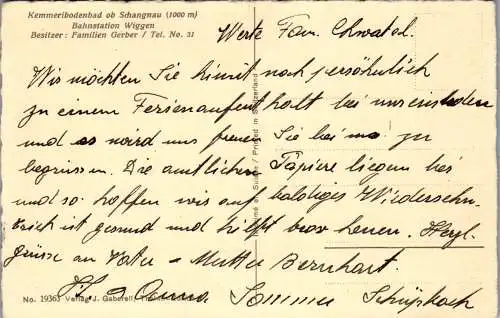 Kemmeribodenbad ob Schangnau (1000 m)
Bahnstation Wiggen
Besitzer: Familien Gerber / Tel. No. 31
Werte Fam. Chwatal.
Wir möchten Sie hiemit noch persöhnlich
zu einem Ferienaufenthalt bei uns einladen
und es wird uns freuen Sie bei uns zu
begrüssen. Die amtlichen Papiere liegen bei
und so hoffen wir auf baldiges Wiedersehn.
ist gesund und hilft brav heuen. Herzl.
Grüsse an Vater u. Mutter Bernhart.
Sommer Schüpbach
No. 19363 Verlag J. Gaberell,
Printed in Switzerland